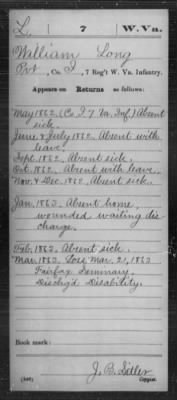 L. 7 W. Va.
William Long
Pvt, Co. I, 7 Reg't W. Va. Infantry.
Appears on Returns as follows:
May 1862 (Co I 7 Va. Inf.) Absent
sick.
June & July 1862. Absent with
leave.
Sept. 1862. Absent sick.
Oct. 1862. Absent with leave.
Nov. & Dec. 1862. Absent sick.
Jan. 1863. Absent home,
wounded waiting dis
charge.
Feb. 1863. Absent sick.
Mar. 1863. Loss Mar. 21, 1863
Fairfax Seminary.
Disch'g'd Disability.
Book mark:
(546) Copyist.